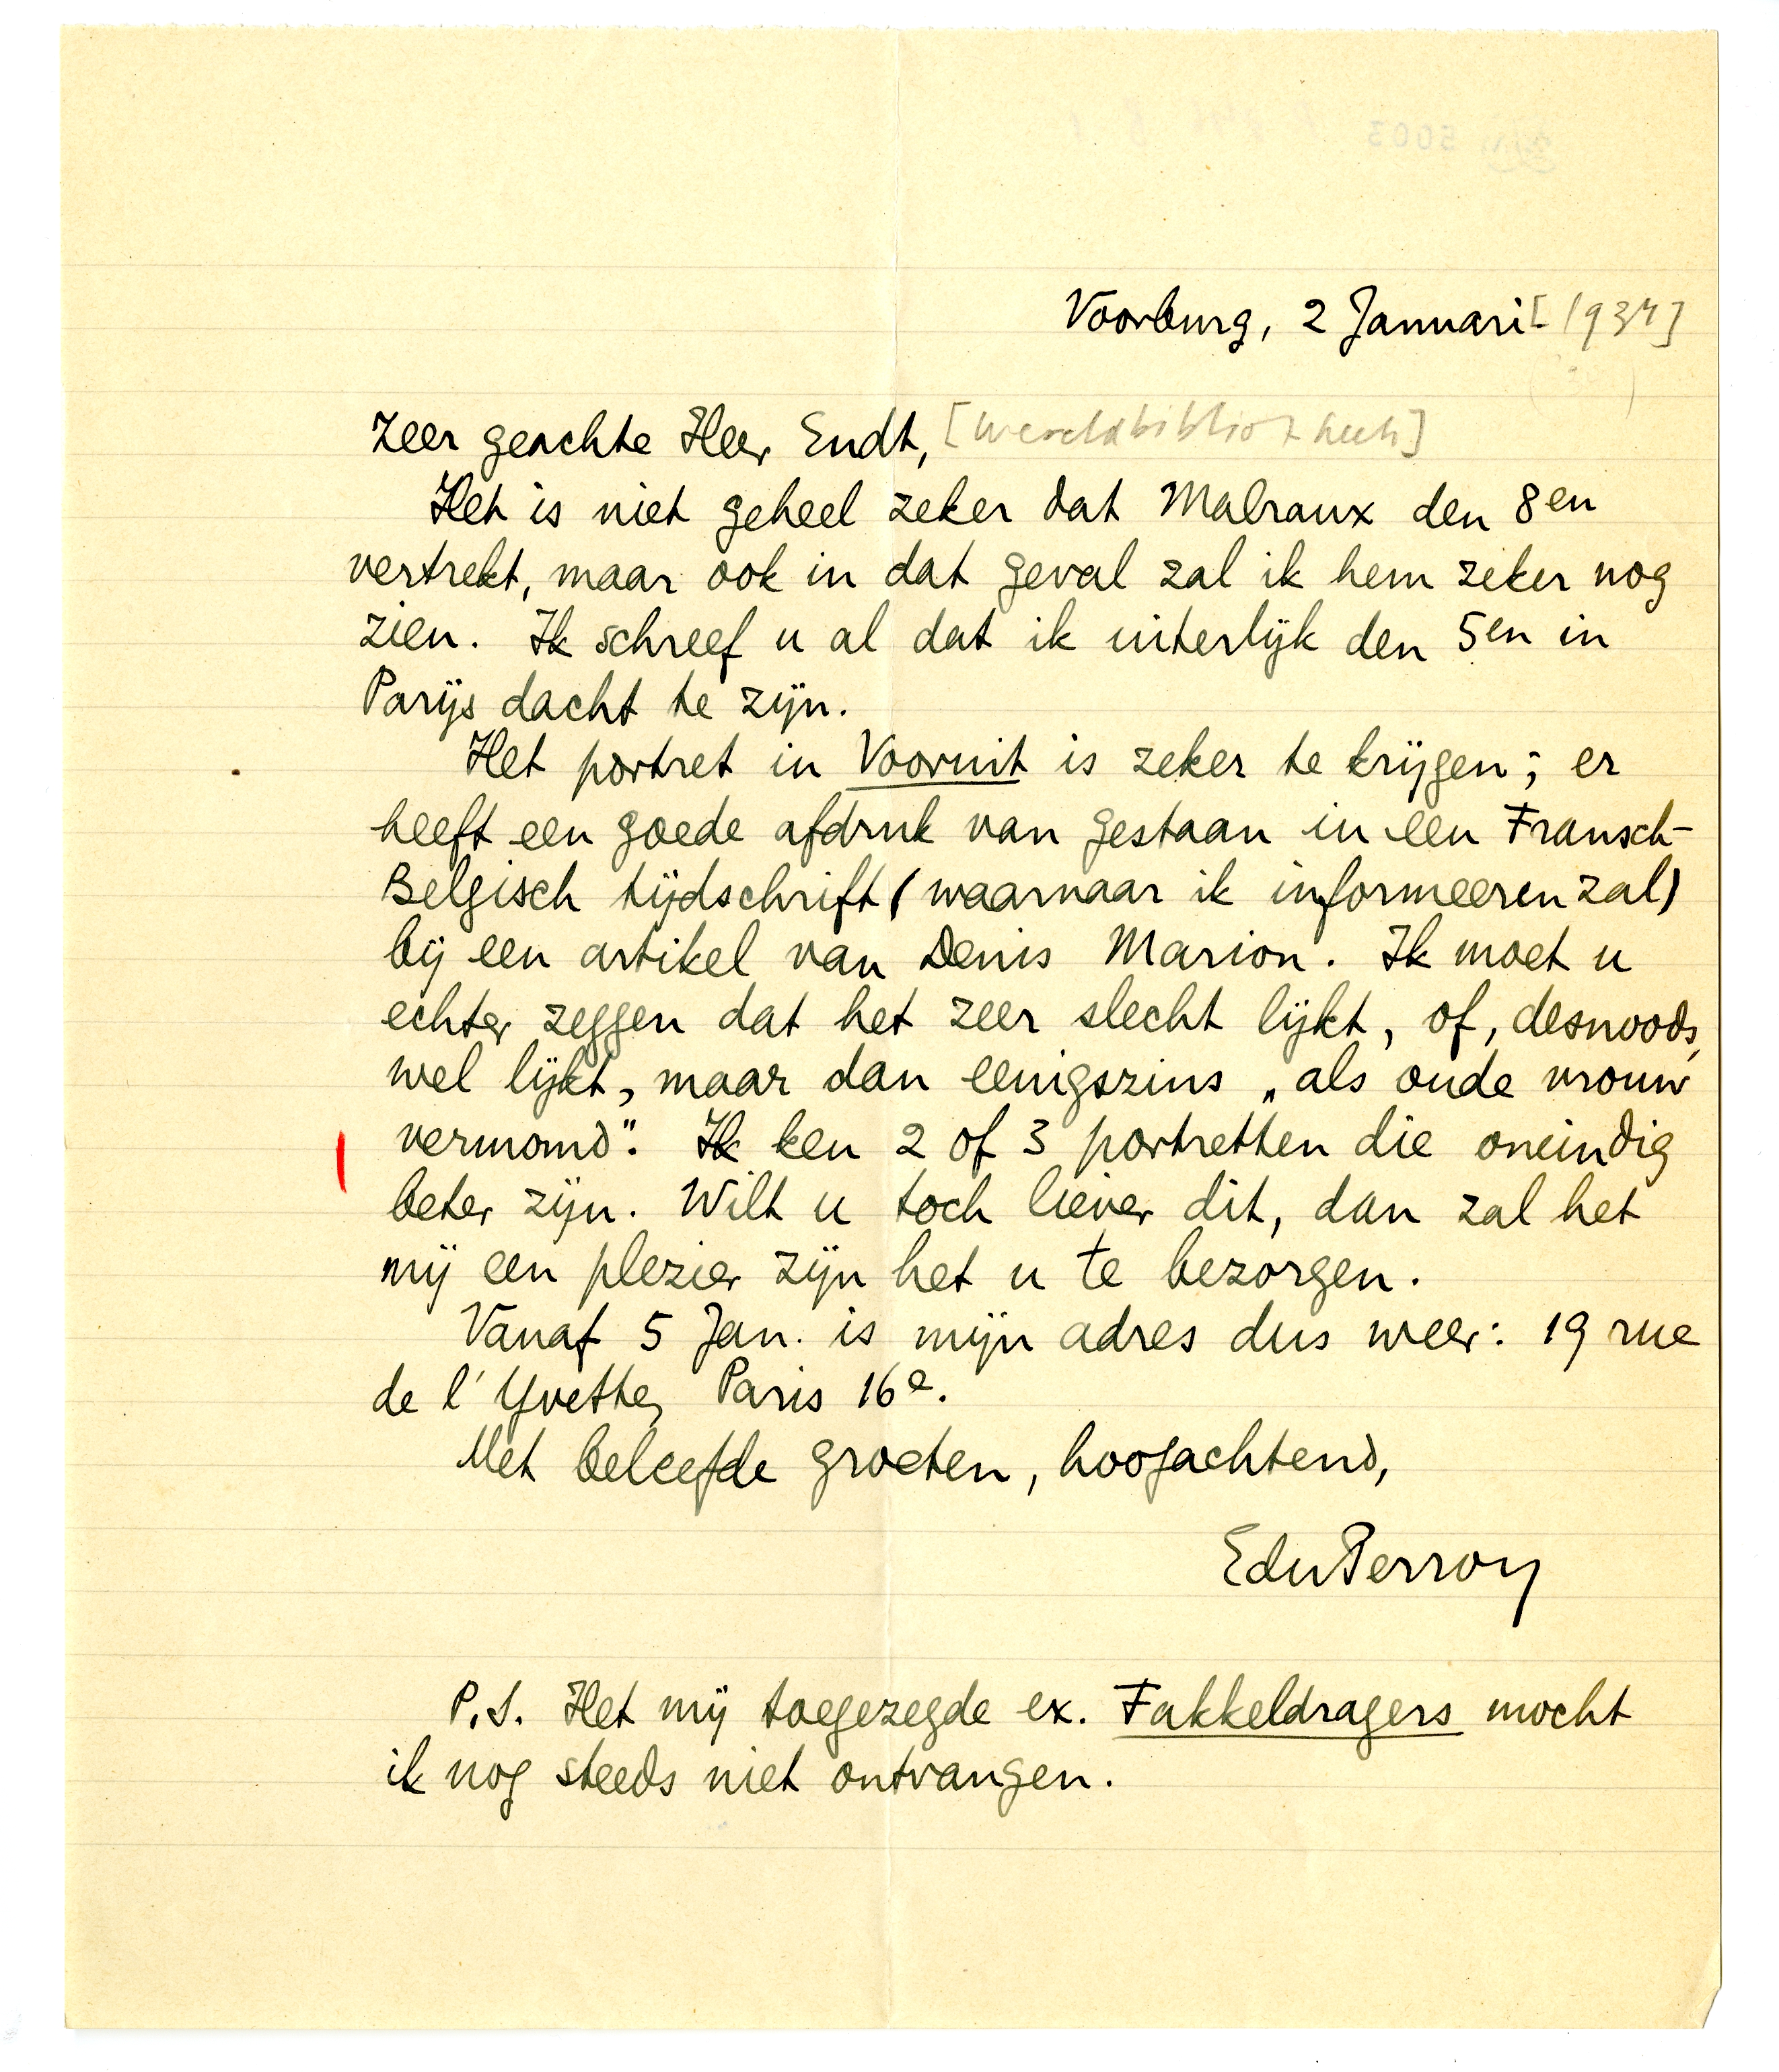 Voorburg, 2 Januari [1934]
Zeer geachte Heer Endt, [Wereldbibliotheek]
Het is niet geheel zeker dat Malraux den 8en
vertrekt, maar ook in dat geval zal ik hem zeker nog
zien. Ik schreef u al dat ik uiterlijk den 5en in
Parijs dacht te zijn.
Het portret in Vooruit is zeker te krijgen; er
heeft een goede afdruk van gestaan in een Fransch-
Belgisch tijdschrift (waarnaar ik informeeren zal)
bij een artikel van Denis Marion. Ik moet u
echter zeggen dat het zeer slecht lijkt, of, desnoods,
wel lijkt, maar dan eenigszins „als oude vrouw
vermomd". Ik ken 2 of 3 portretten die oneindig
beter zijn. Wilt u toch liever dit, dan zal het
mij een plezier zijn het u te bezorgen.
Vanaf 5 Jan. is mijn adres dus weer: 19 rue
de l'Yvette, Paris 16e.
Met beleefde groeten, hoogachtend,
EduPerron
P.S. Het mij toegezegde ex. Fakkeldragers mocht
ik nog steeds niet ontvangen.